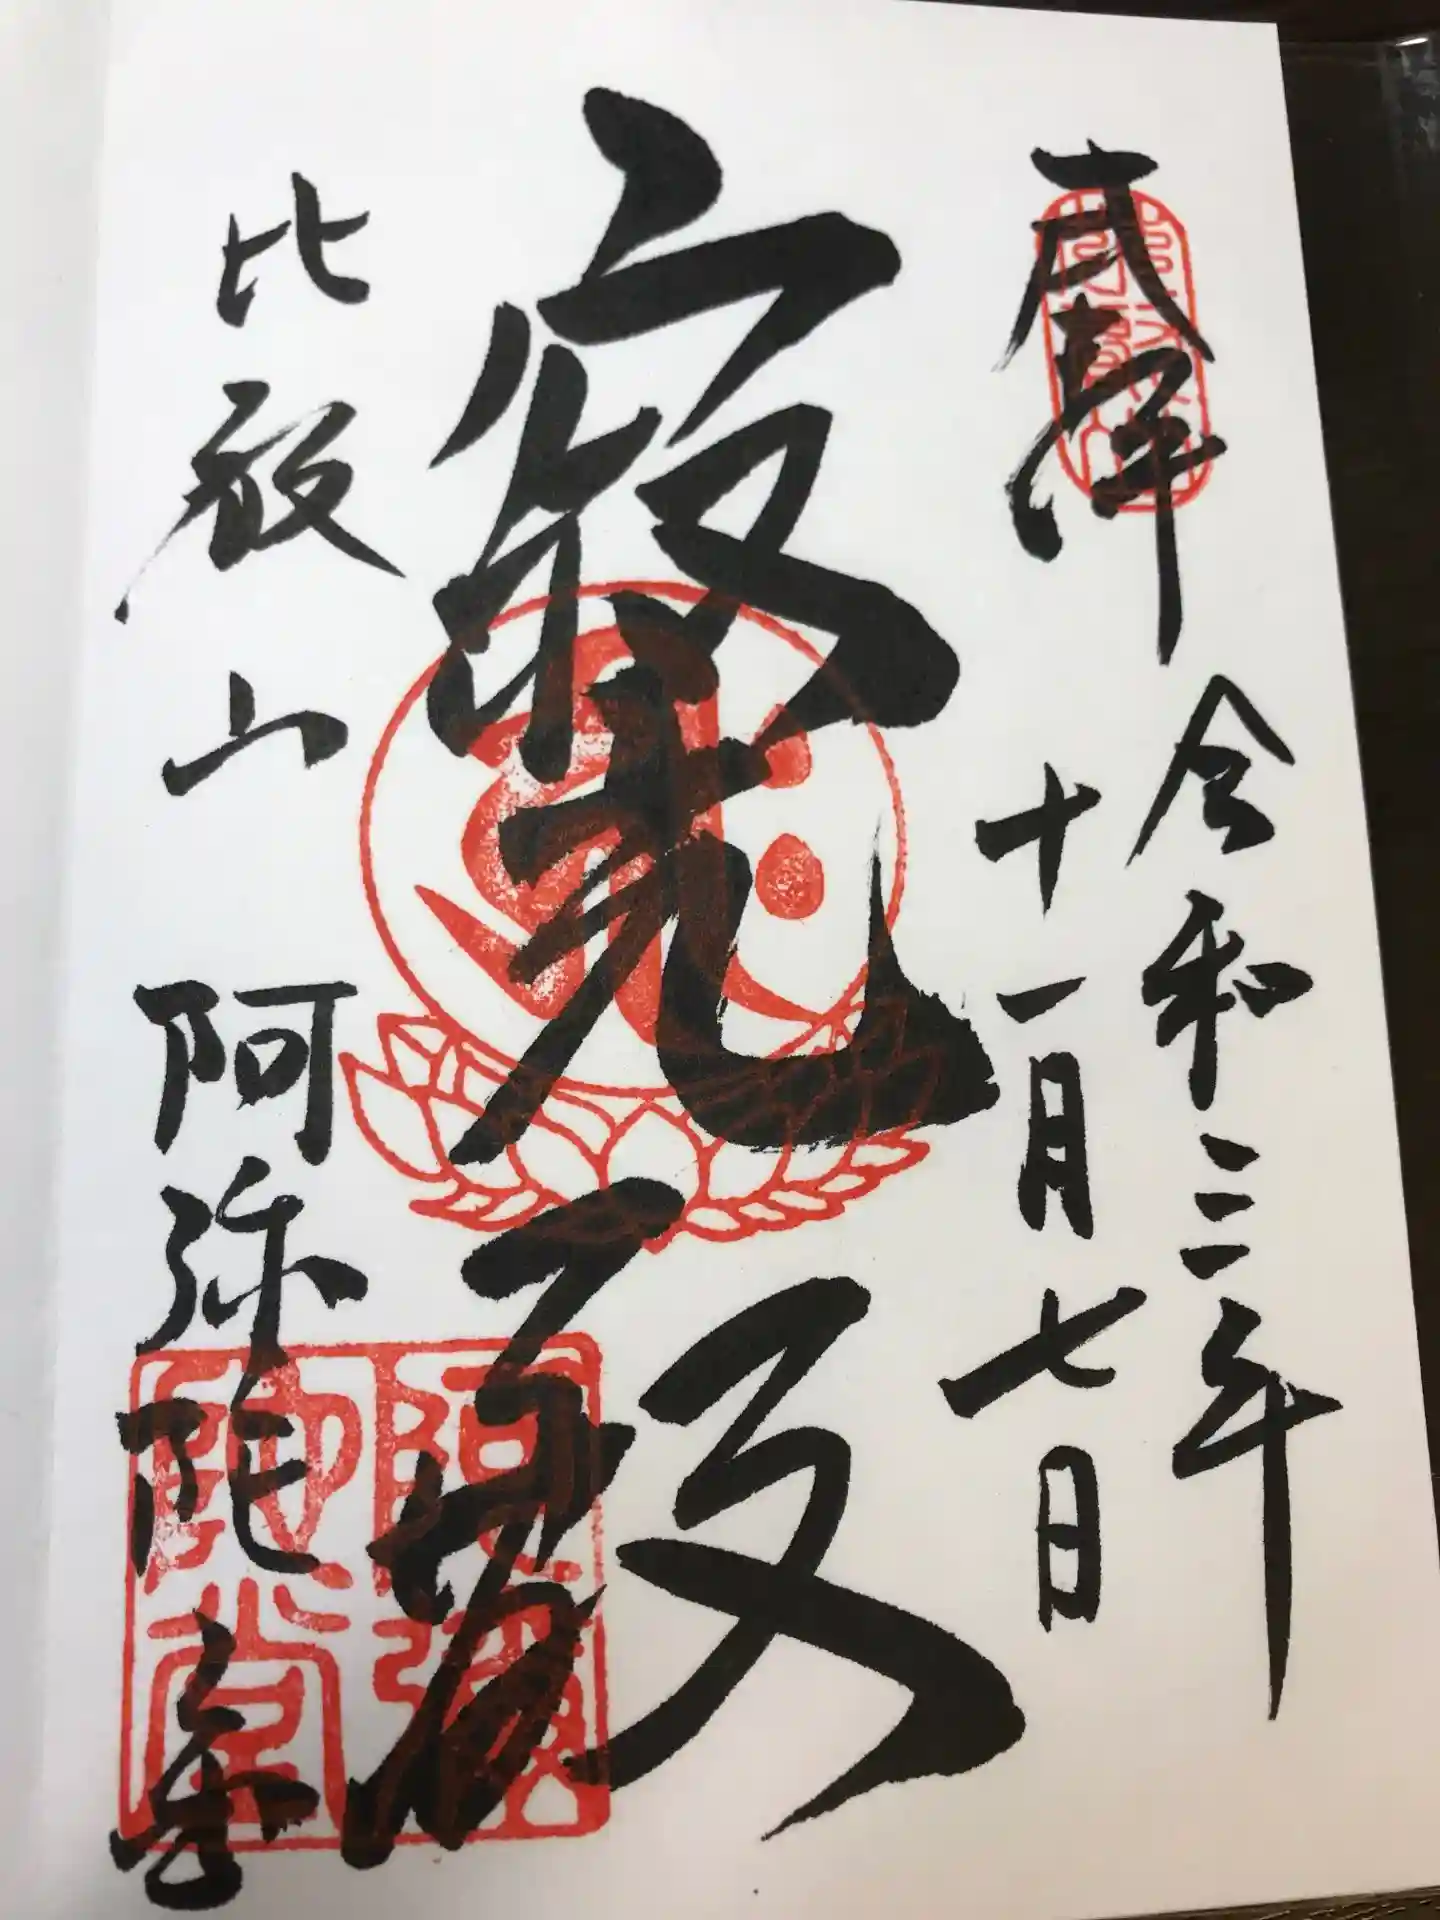 奉拝
令和三年
十一月七日
寂光殿
比叡山 阿弥陀堂
阿弥陀堂